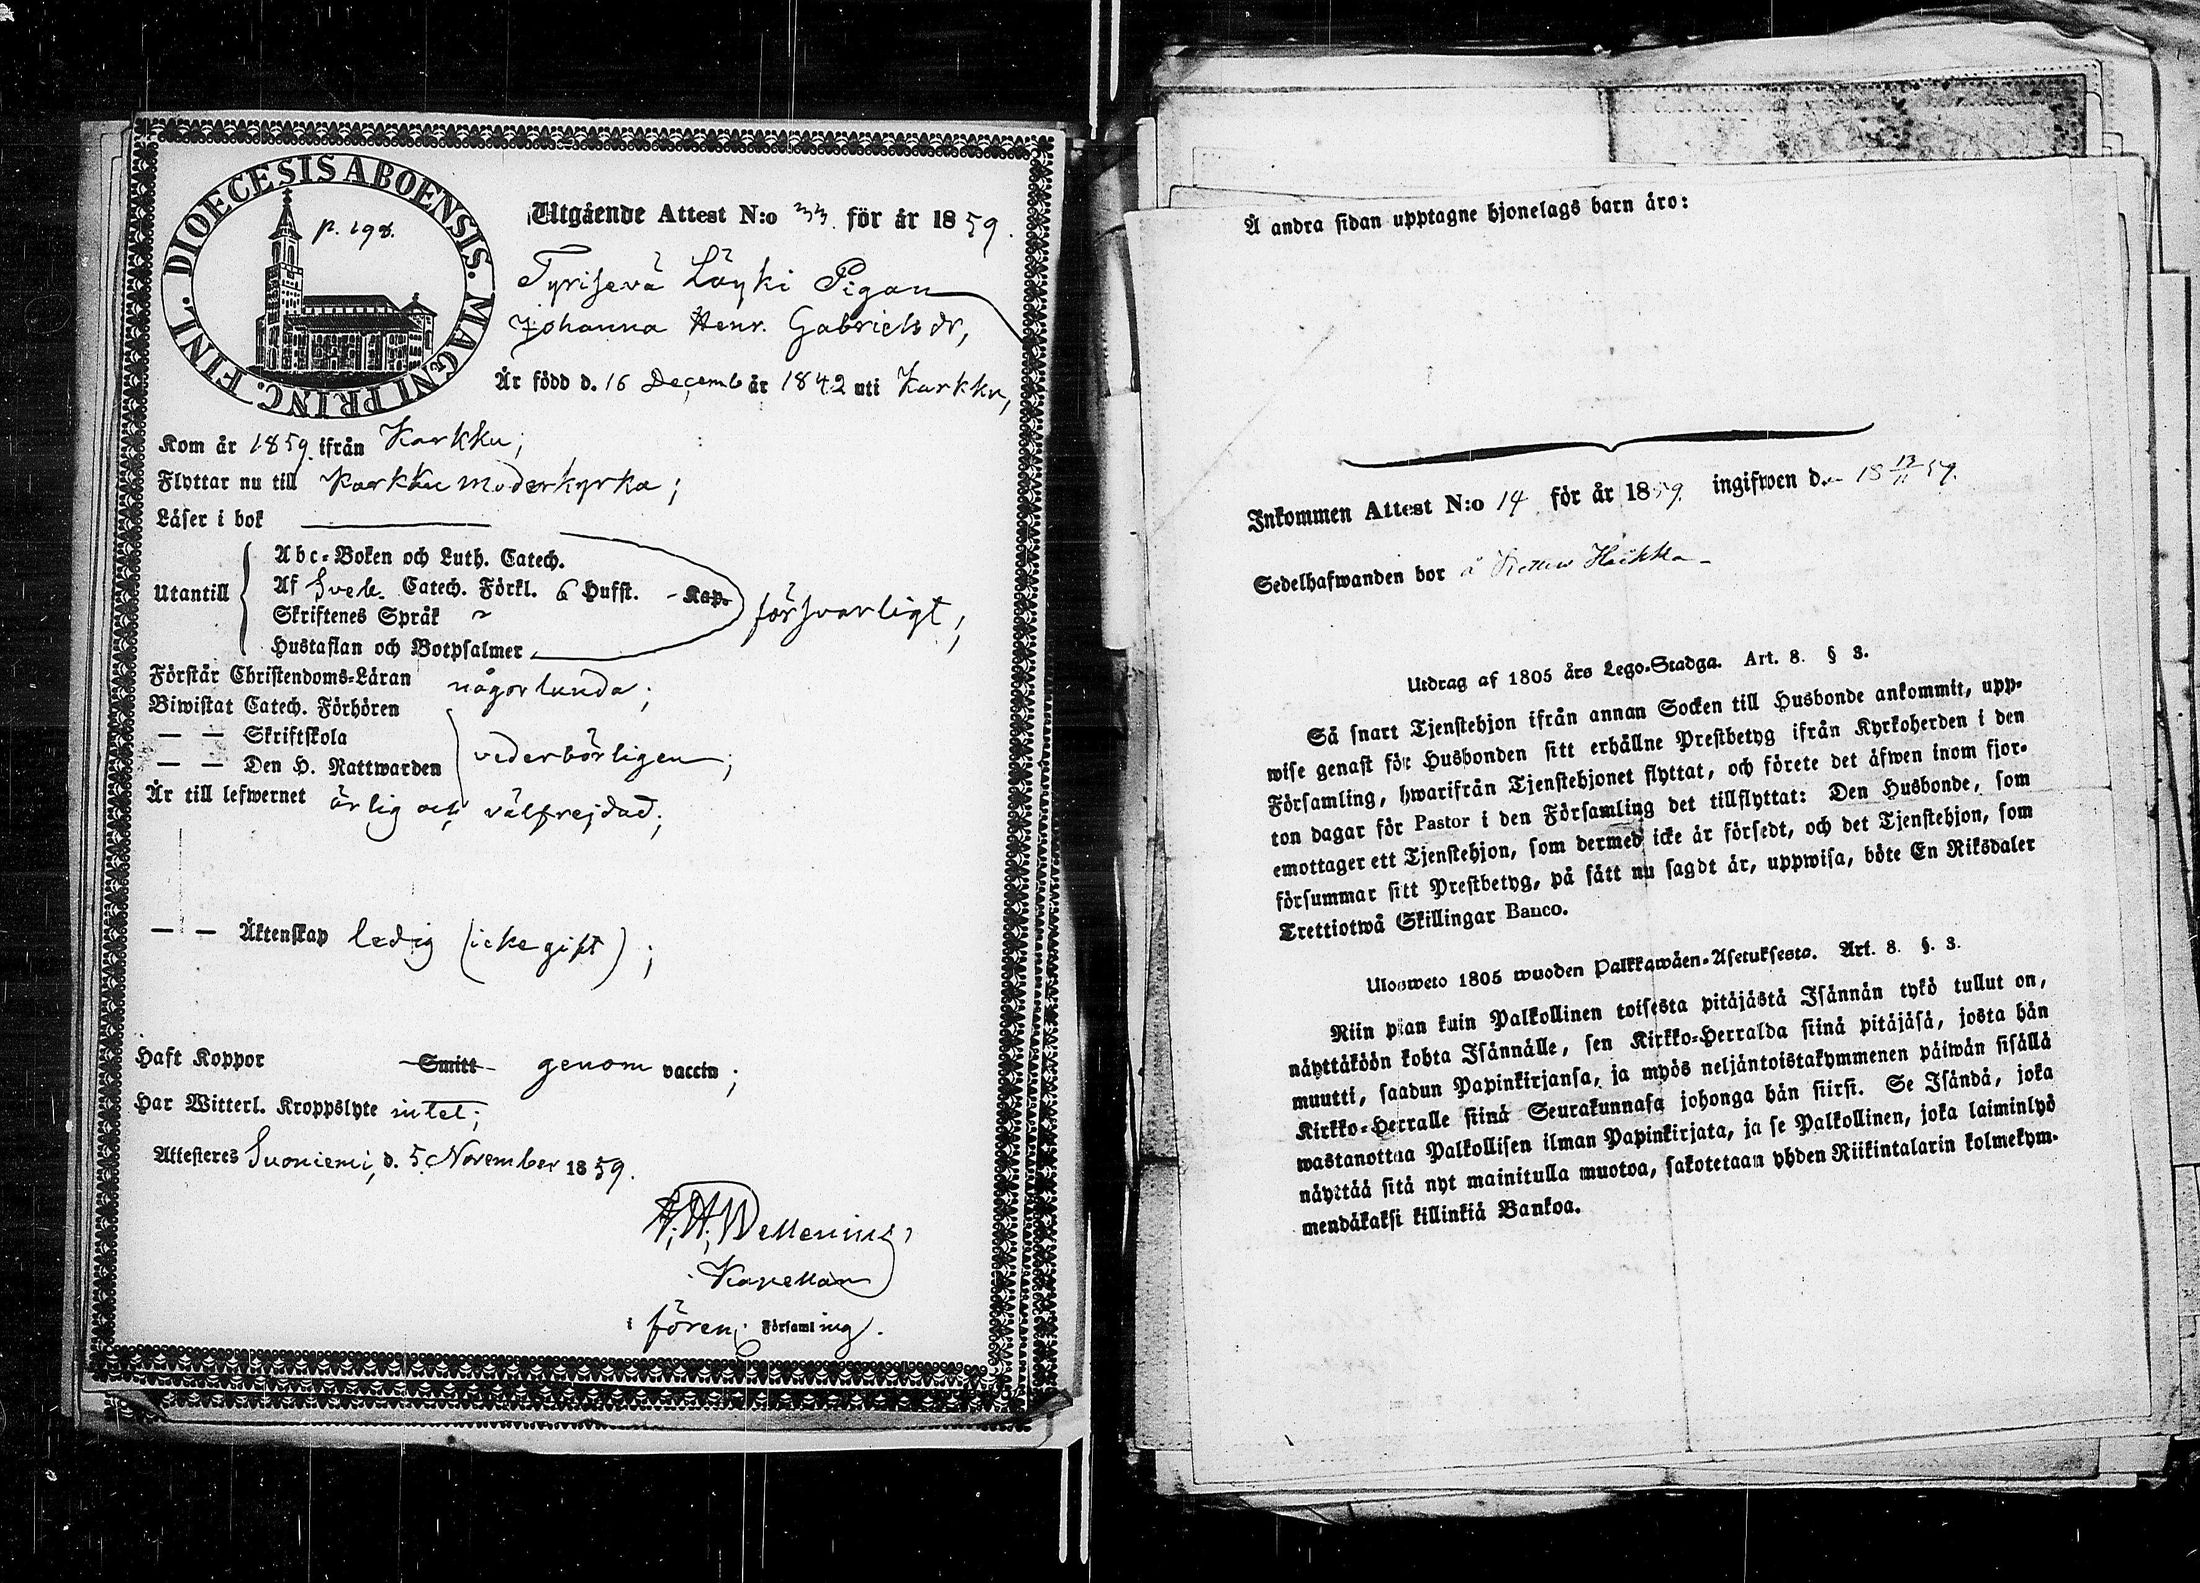 DIOECESIS ABOENSIS. MAGNI PRINC. FINL.
p. 198.
Utgående Attest N:o 33. för år 1859.
Tyrisevä Löyki Pigan
Johanna Henr. Gabrielsdr,
Är född d. 16 Decemb år 1842 uti Karkku,
Kom år 1859. ifrån Karkku;
Flyttar nu till Karkku moderkyrka;
Läser i bok
Utantill
Abc-Boken och Luth. Catech.
Af Sveb. Catech. Förkl. 6 Hufst. - Kap.
Skriftenes Språk
Hustaflan och Botpsalmer
försvarligt;
Förstår Christendoms-Läran någorlunda;
Biwistat Catech. Förhören
— — Skriftskola
— — Den H. Nattwarden
vederbörligen;
Är till lefwernet ärlig och välfrejdad;
— — Äktenskap ledig (icke gift);
Haft Koppor Smitt genom vaccin;
Har Witterl. Kroppslyte intet;
Attesteres Suoniemi, d. 5. November 1859.
Kapellan
i fören. Församling.
Å andra sidan upptagne hjonelags barn äro:
Inkommen Attest N:o 14 för år 1859. ingifwen d. 18 13/11 59.
Sedelhafwanden bor å Hackka
Utdrag af 1805 års Lego-Stadga. Art. 8. § 3.
Så snart Tjenstehjon ifrån annan Socken till Husbonde ankommit, upp-
wise genast för Husbonden sitt erhållne Prestbetyg ifrån Kyrkoherden i den
Församling, hwarifrån Tjenstehjonet flyttat, och förete det äfwen inom fjor-
ton dagar för Pastor i den Församling det tillflyttat: Den Husbonde, som
emottager ett Tjenstehjon, som dermed icke är försedt, och det Tjenstehjon, som
försummar sitt Prestbetyg, på sätt nu sagdt är, uppwisa, böte En Riksdaler
Trettiotwå Skillingar Banco.
Ulosweto 1805 wuoden Palkkawäen-Asetuksesta. Art. 8. §. 3.
Niin pian kuin Palkollinen toisesta pitäjästä Isännän tykö tullut on,
näyttäköön kohta Isännälle, sen Kirkko-Herralda siinä pitäjäsä, josta hän
muutti, saadun Papinkirjansa, ja myös neljäntoistakymmenen päiwän sisällä
Kirkko-Herralle siinä Seurakunnasa johonga hän siirsi. Se Isändä, joka
wastanottaa Palkollisen ilman Papinkirjata, ja se Palkollinen, joka laiminlyö
näyttää sitä nyt mainitulla muotoa, sakotetaan yhden Riikintalarin kolmekym-
mendäkaksi killinkiä Bankoa.